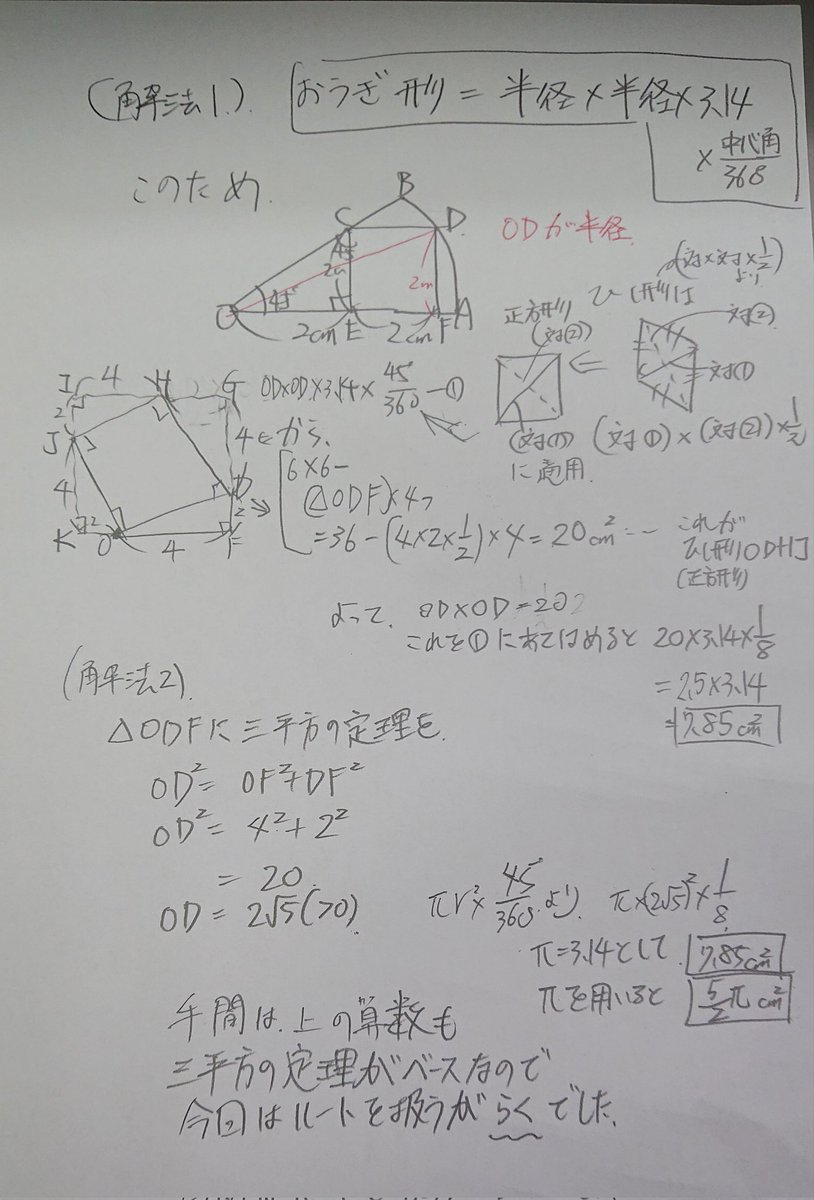 (解法1).
おうぎ形 = 半径×半径×3.14
× 中心角/368
このため.
B
C
D.
45°
2cm
45°
2cm
O
2cm E 2cm F A
ODが半径.
(対×対×1/2)より
ひし形は
正方形
(対②)
対②
対①
(対①)
に適用.
(対①)×(対②)×1/2
I 4 H G
2
J
4
K 2 O 4 F
4
D
2
OD×OD×3.14×45/360 ─①
から、
6×6−
(△ODF)×4
=36−(4×2×1/2)×4=20cm² …
これが
ひし形ODHJ
(正方形)
よって、OD×OD=20
これを①にあてはめると 20×3.14×1/8
=2.5×3.14
=7.85cm²
(解法2).
△ODFに三平方の定理を.
OD²= OF²+DF²
OD²= 4²+2²
= 20.
OD = 2√5(>0).
πr²×45/360 より. π×(2√5)²×1/8
π=3.14として. 7.85cm²
πを用いると 5/2π cm²
手間は.上の算数も
三平方の定理がベースなので
今回はルートを扱うがらくでした.